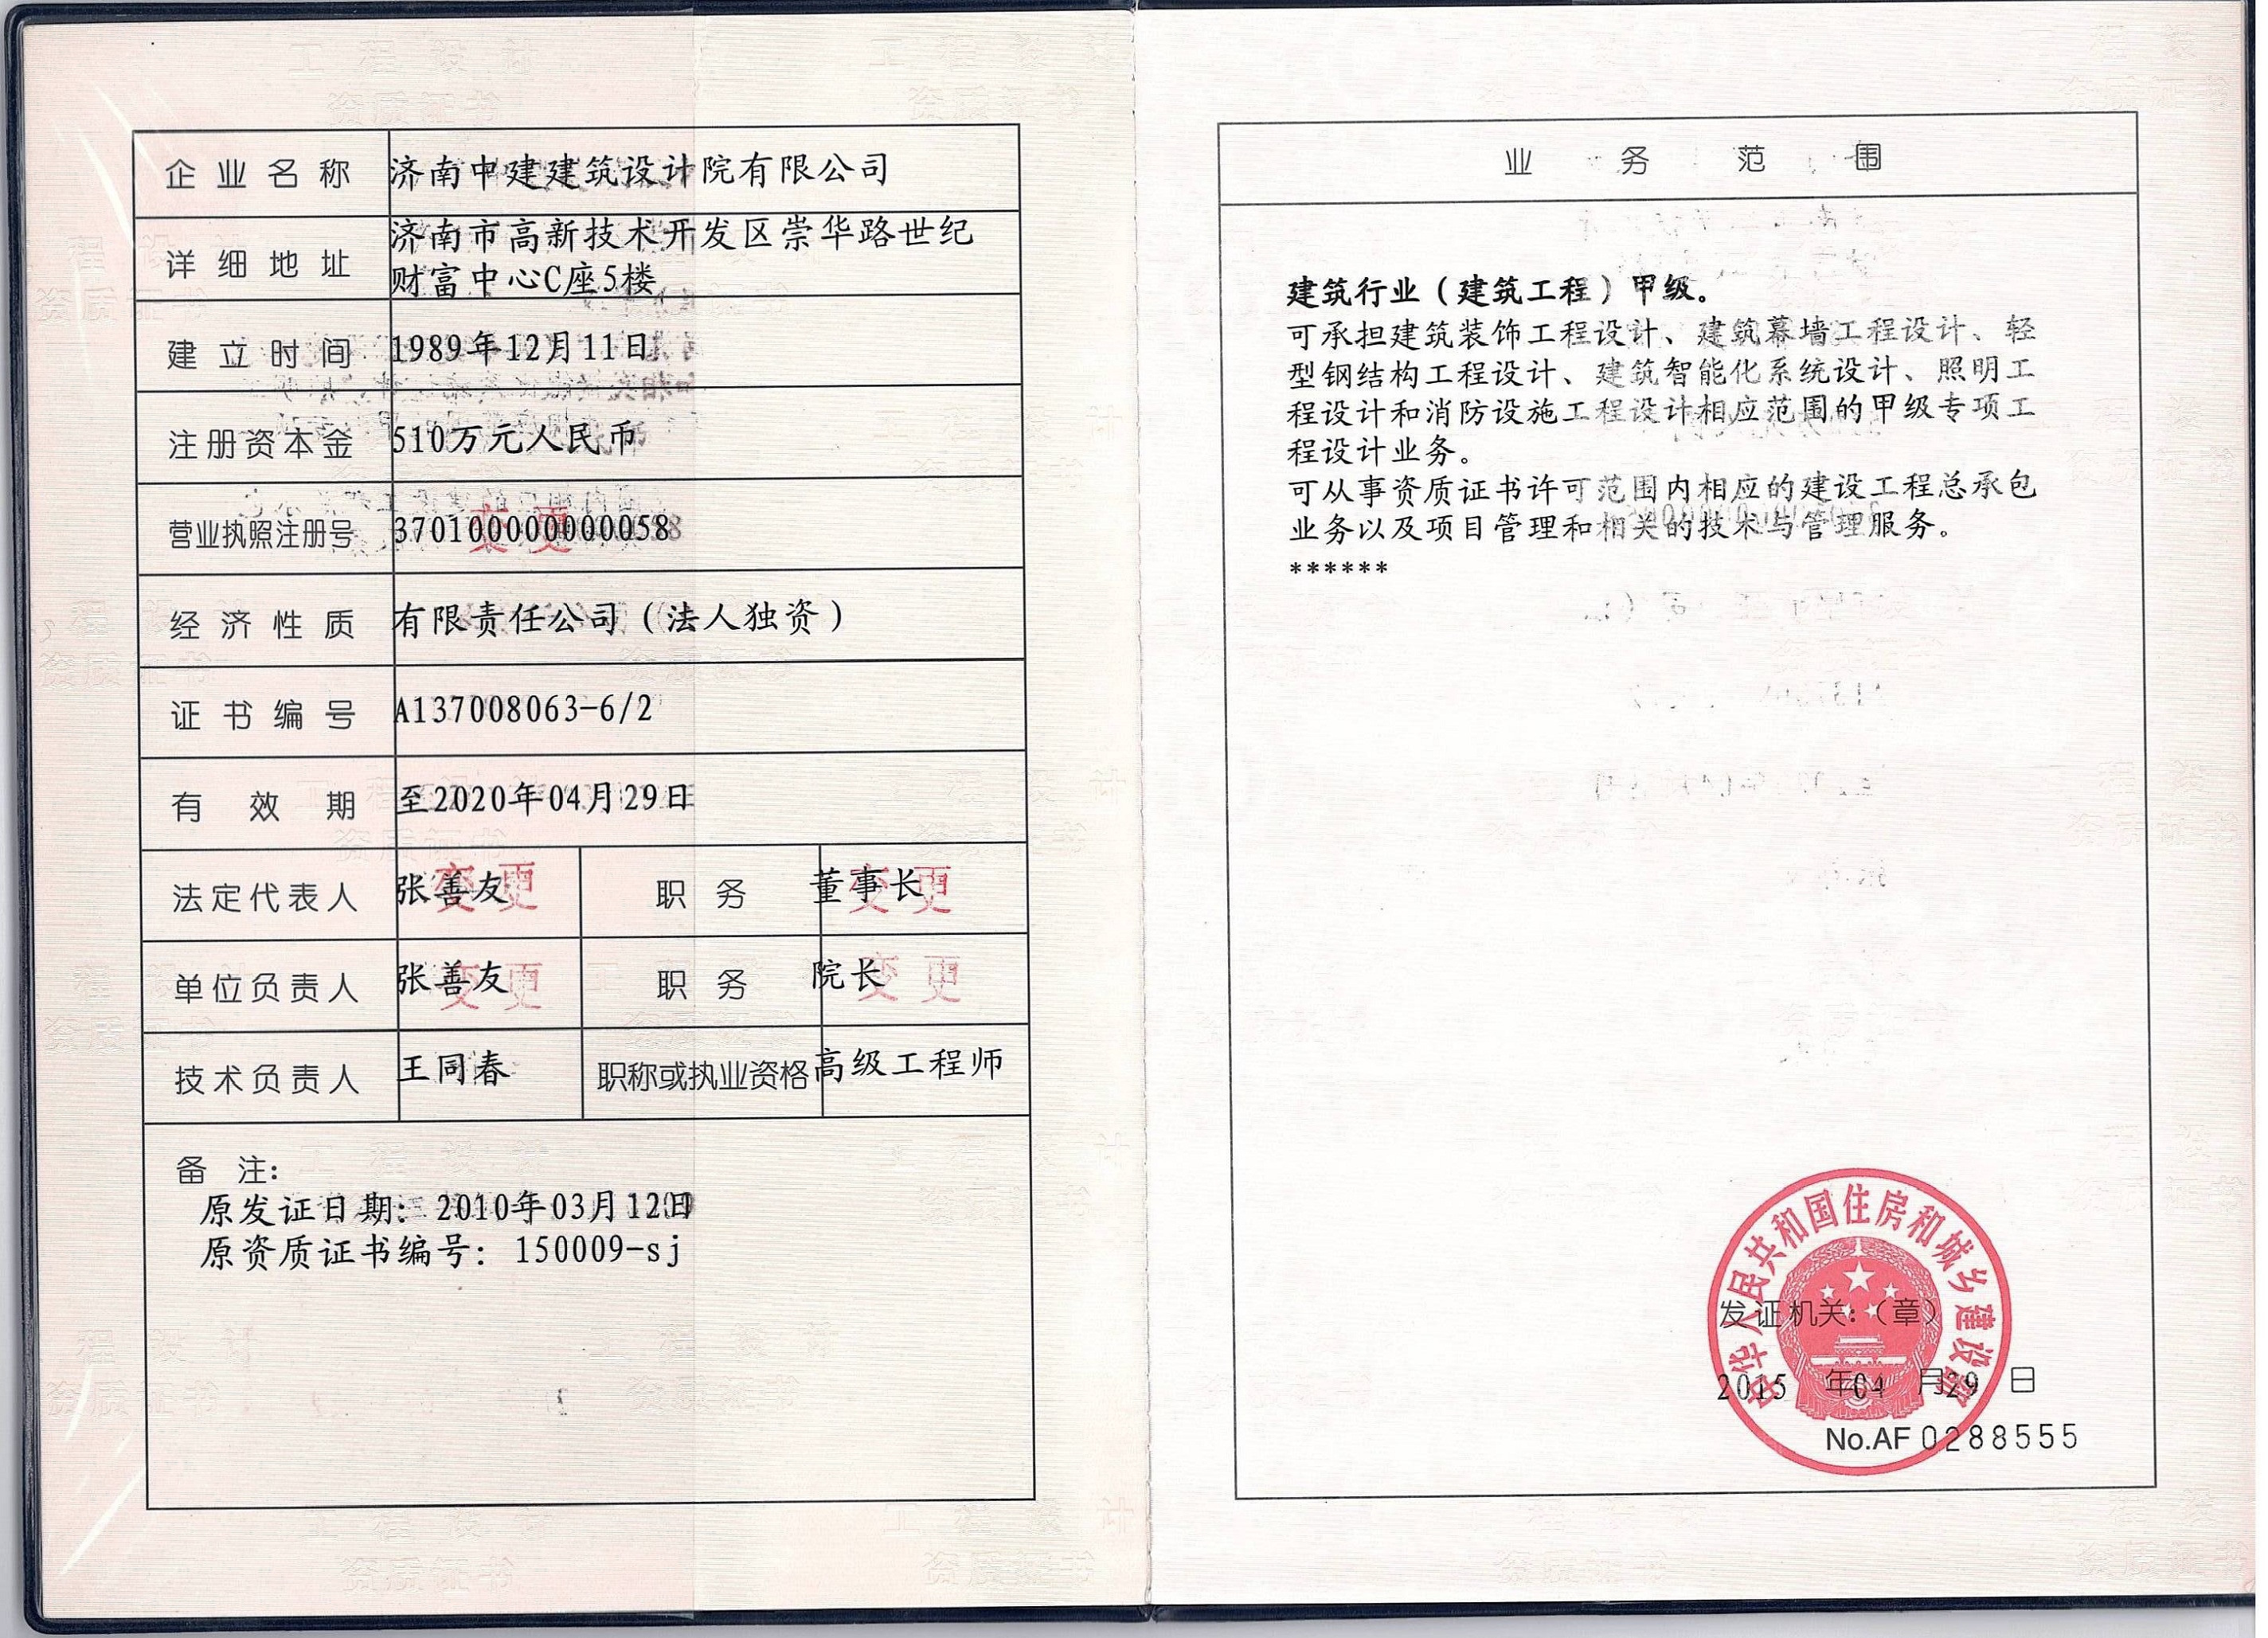 企业名称 济南中建建筑设计院有限公司
详细地址 济南市高新技术开发区崇华路世纪
财富中心C座5楼
建立时间 1989年12月11日
注册资本金 510万元人民币
营业执照注册号 370100000000058 变更
经济性质 有限责任公司（法人独资）
证书编号 A137008063-6/2
有效期 至2020年04月29日
法定代表人 张善友 变更 职务 董事长 变更
单位负责人 张善友 变更 职务 院长 变更
技术负责人 王同春 职称或执业资格 高级工程师
备注：
原发证日期：2010年03月12日
原资质证书编号：150009-sj
业务范围
建筑行业（建筑工程）甲级。
可承担建筑装饰工程设计、建筑幕墙工程设计、轻
型钢结构工程设计、建筑智能化系统设计、照明工
程设计和消防设施工程设计相应范围的甲级专项工
程设计业务。
可从事资质证书许可范围内相应的建设工程总承包
业务以及项目管理和相关的技术与管理服务。
******
中华人民共和国住房和城乡建设部
发证机关：（章）
2015年04月29日
No.AF0288555
工程设计
资质证书